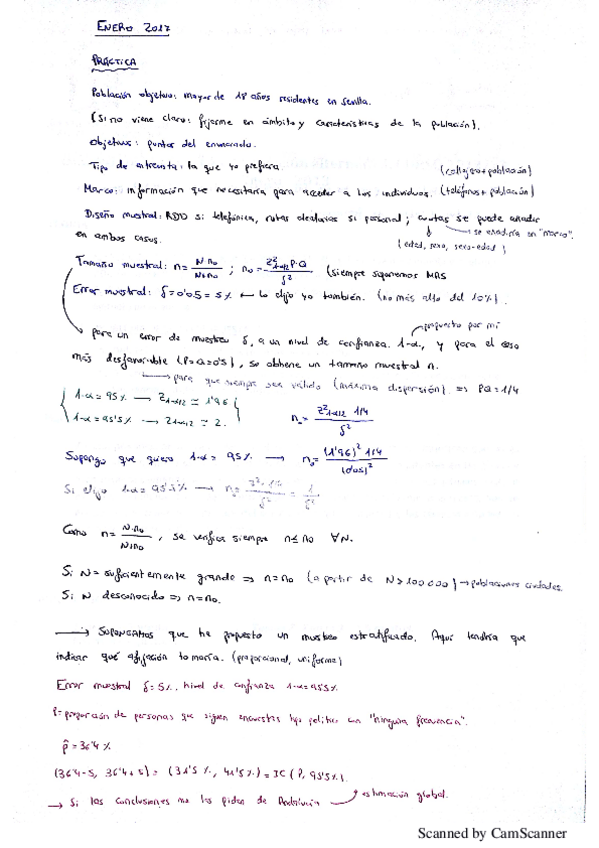 ENERO 2017
PRÁCTICA
Población objetivo: mayor de 18 años residentes en Sevilla.
(Si no viene claro: fijarme en ámbito y características de la población).
Objetivos: puntos del enunciado.
Tipo de entrevista: la que yo prefiera.
(callejero + población)
Marco: información que necesitaría para acceder a los individuos. (teléfonos + población)
Diseño muestral: RDD si telefónica, rutas aleatorias si personal; cuotas se puede añadir
en ambos casos.
↓ (edad, sexo, sexo-edad)
→ se añadiría en "marco".
Tamaño muestral: n = N·n₀/N+n₀ ; n₀ = Z²₁₋α/₂ P·Q/δ² (siempre suponemos MAS
Error muestral: δ = 0'05 = 5% ← lo elijo yo también. (no más alto del 10%).
propuesto por mí
para un error de muestreo δ, a un nivel de confianza 1-α, y para el caso
más desfavorable (P=Q=0'5), se obtiene un tamaño muestral n.
→ para que siempre sea válido (máxima dispersión) ⇒ PQ = 1/4
1-α = 95% → Z₁₋α/₂ ≃ 1'96
1-α = 95'5% → Z₁₋α/₂ ≃ 2.
n₀ = Z²₁₋α/₂ 1/4/δ²
Supongo que quiero 1-α = 95% → n₀ = (1'96)² 1/4/(0'05)²
Si elijo 1-α = 95'5% → n₀ = 2²·1/4/δ² = 1/δ²
Como n = N·n₀/N+n₀, se verifica siempre n ≤ n₀ ∀N.
Si N = suficientemente grande ⇒ n = n₀ (a partir de N > 100000) → poblaciones ciudades.
Si N desconocido ⇒ n = n₀.
→ SUPONGAMOS que he propuesto un muestreo estratificado. Aquí tendría que
indicar qué afijación tomaría. (proporcional, uniforme)
Error muestral δ = 5%. nivel de confianza 1-α = 95'5%
P = proporción de personas que siguen encuestas tipo político con "ninguna frecuencia".
p̂ = 36'4%
(36'4-5, 36'4+5) = (31'5%, 41'5%) = IC (P, 95'5%).
→ Si las conclusiones me las piden de Andalucía → estimación global.
Scanned by CamScanner